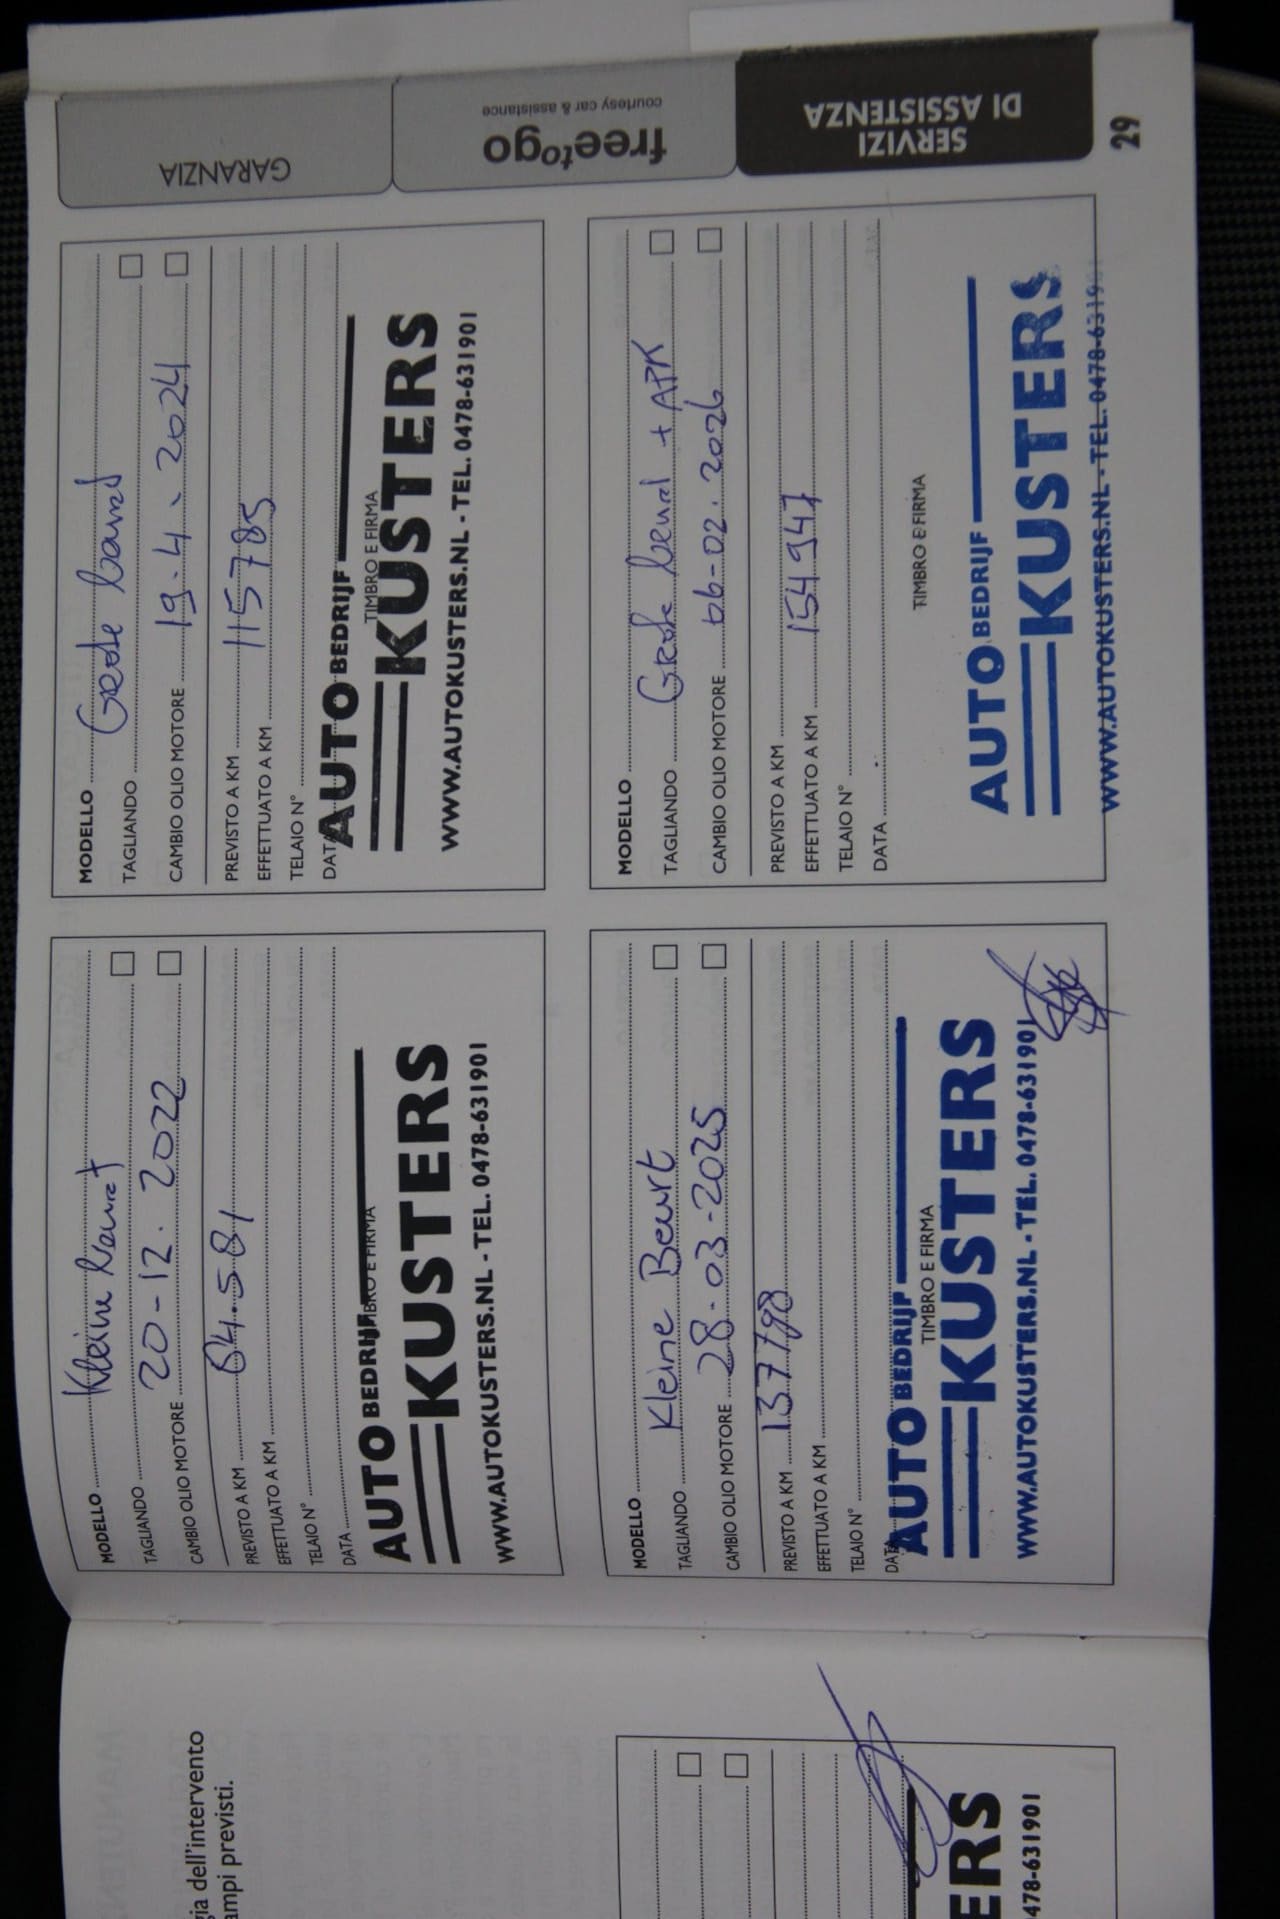 gia dell'intervento
ampi previsti.
ERS
478-631901
MODELLO Kleine beurt
TAGLIANDO 20-12.2022
CAMBIO OLIO MOTORE
PREVISTO A KM
EFFETTUATO A KM
TELAIO N°
DATA
AUTO BEDRIJF
TIMBRO E FIRMA
KUSTERS
WWW.AUTOKUSTERS.NL - TEL. 0478-631901
MODELLO Grote beurt
TAGLIANDO
CAMBIO OLIO MOTORE 19.4.2024
PREVISTO A KM 115785
EFFETTUATO A KM
TELAIO N°
DATA
AUTO BEDRIJF
TIMBRO E FIRMA
KUSTERS
WWW.AUTOKUSTERS.NL - TEL. 0478-631901
MODELLO
TAGLIANDO Kleine Beurt
CAMBIO OLIO MOTORE 28-03-2025
PREVISTO A KM 137798
EFFETTUATO A KM
TELAIO N°
DATA
AUTO BEDRIJF
TIMBRO E FIRMA
KUSTERS
WWW.AUTOKUSTERS.NL - TEL. 0478-631901
MODELLO
TAGLIANDO Grote beurt + APK
CAMBIO OLIO MOTORE 06-02.2026
PREVISTO A KM
EFFETTUATO A KM 154947
TELAIO N°
DATA
TIMBRO E FIRMA
AUTO BEDRIJF
KUSTERS
WWW.AUTOKUSTERS.NL - TEL. 0478-631901
GARANZIA
freetogo
courtesy car & assistance
SERVIZI
DI ASSISTENZA
29